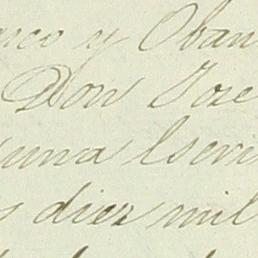 y Oban
Don Jose
una Escri
diez mil